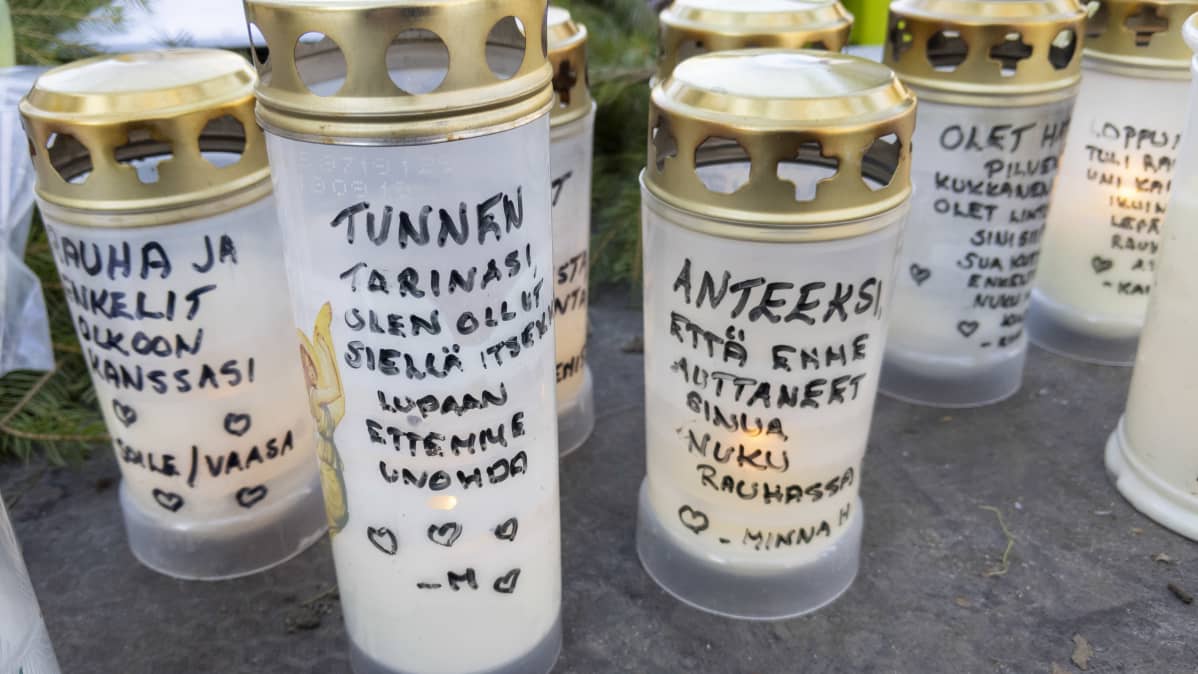 RAUHA JA
ENKELIT
OLKOON
KANSSASI
SOILE/VAASA
TUNNEN
TARINASI,
OLEN OLLUT
SIELLÄ ITSEKIN
LUPAAN
ETTEMME
UNOHDA
-M
ANTEEKSI,
ETTÄ EMME
AUTTANEET
SINUA
NUKU
RAUHASSA
- MINNA H
OLET
PILVEN
KUKKANEN
OLET LINTU
SINISIIPI
SUA
ENKELIT
NUKU
LOPPU
TULI
UNI
IKUIN
LEPÄ
RAU